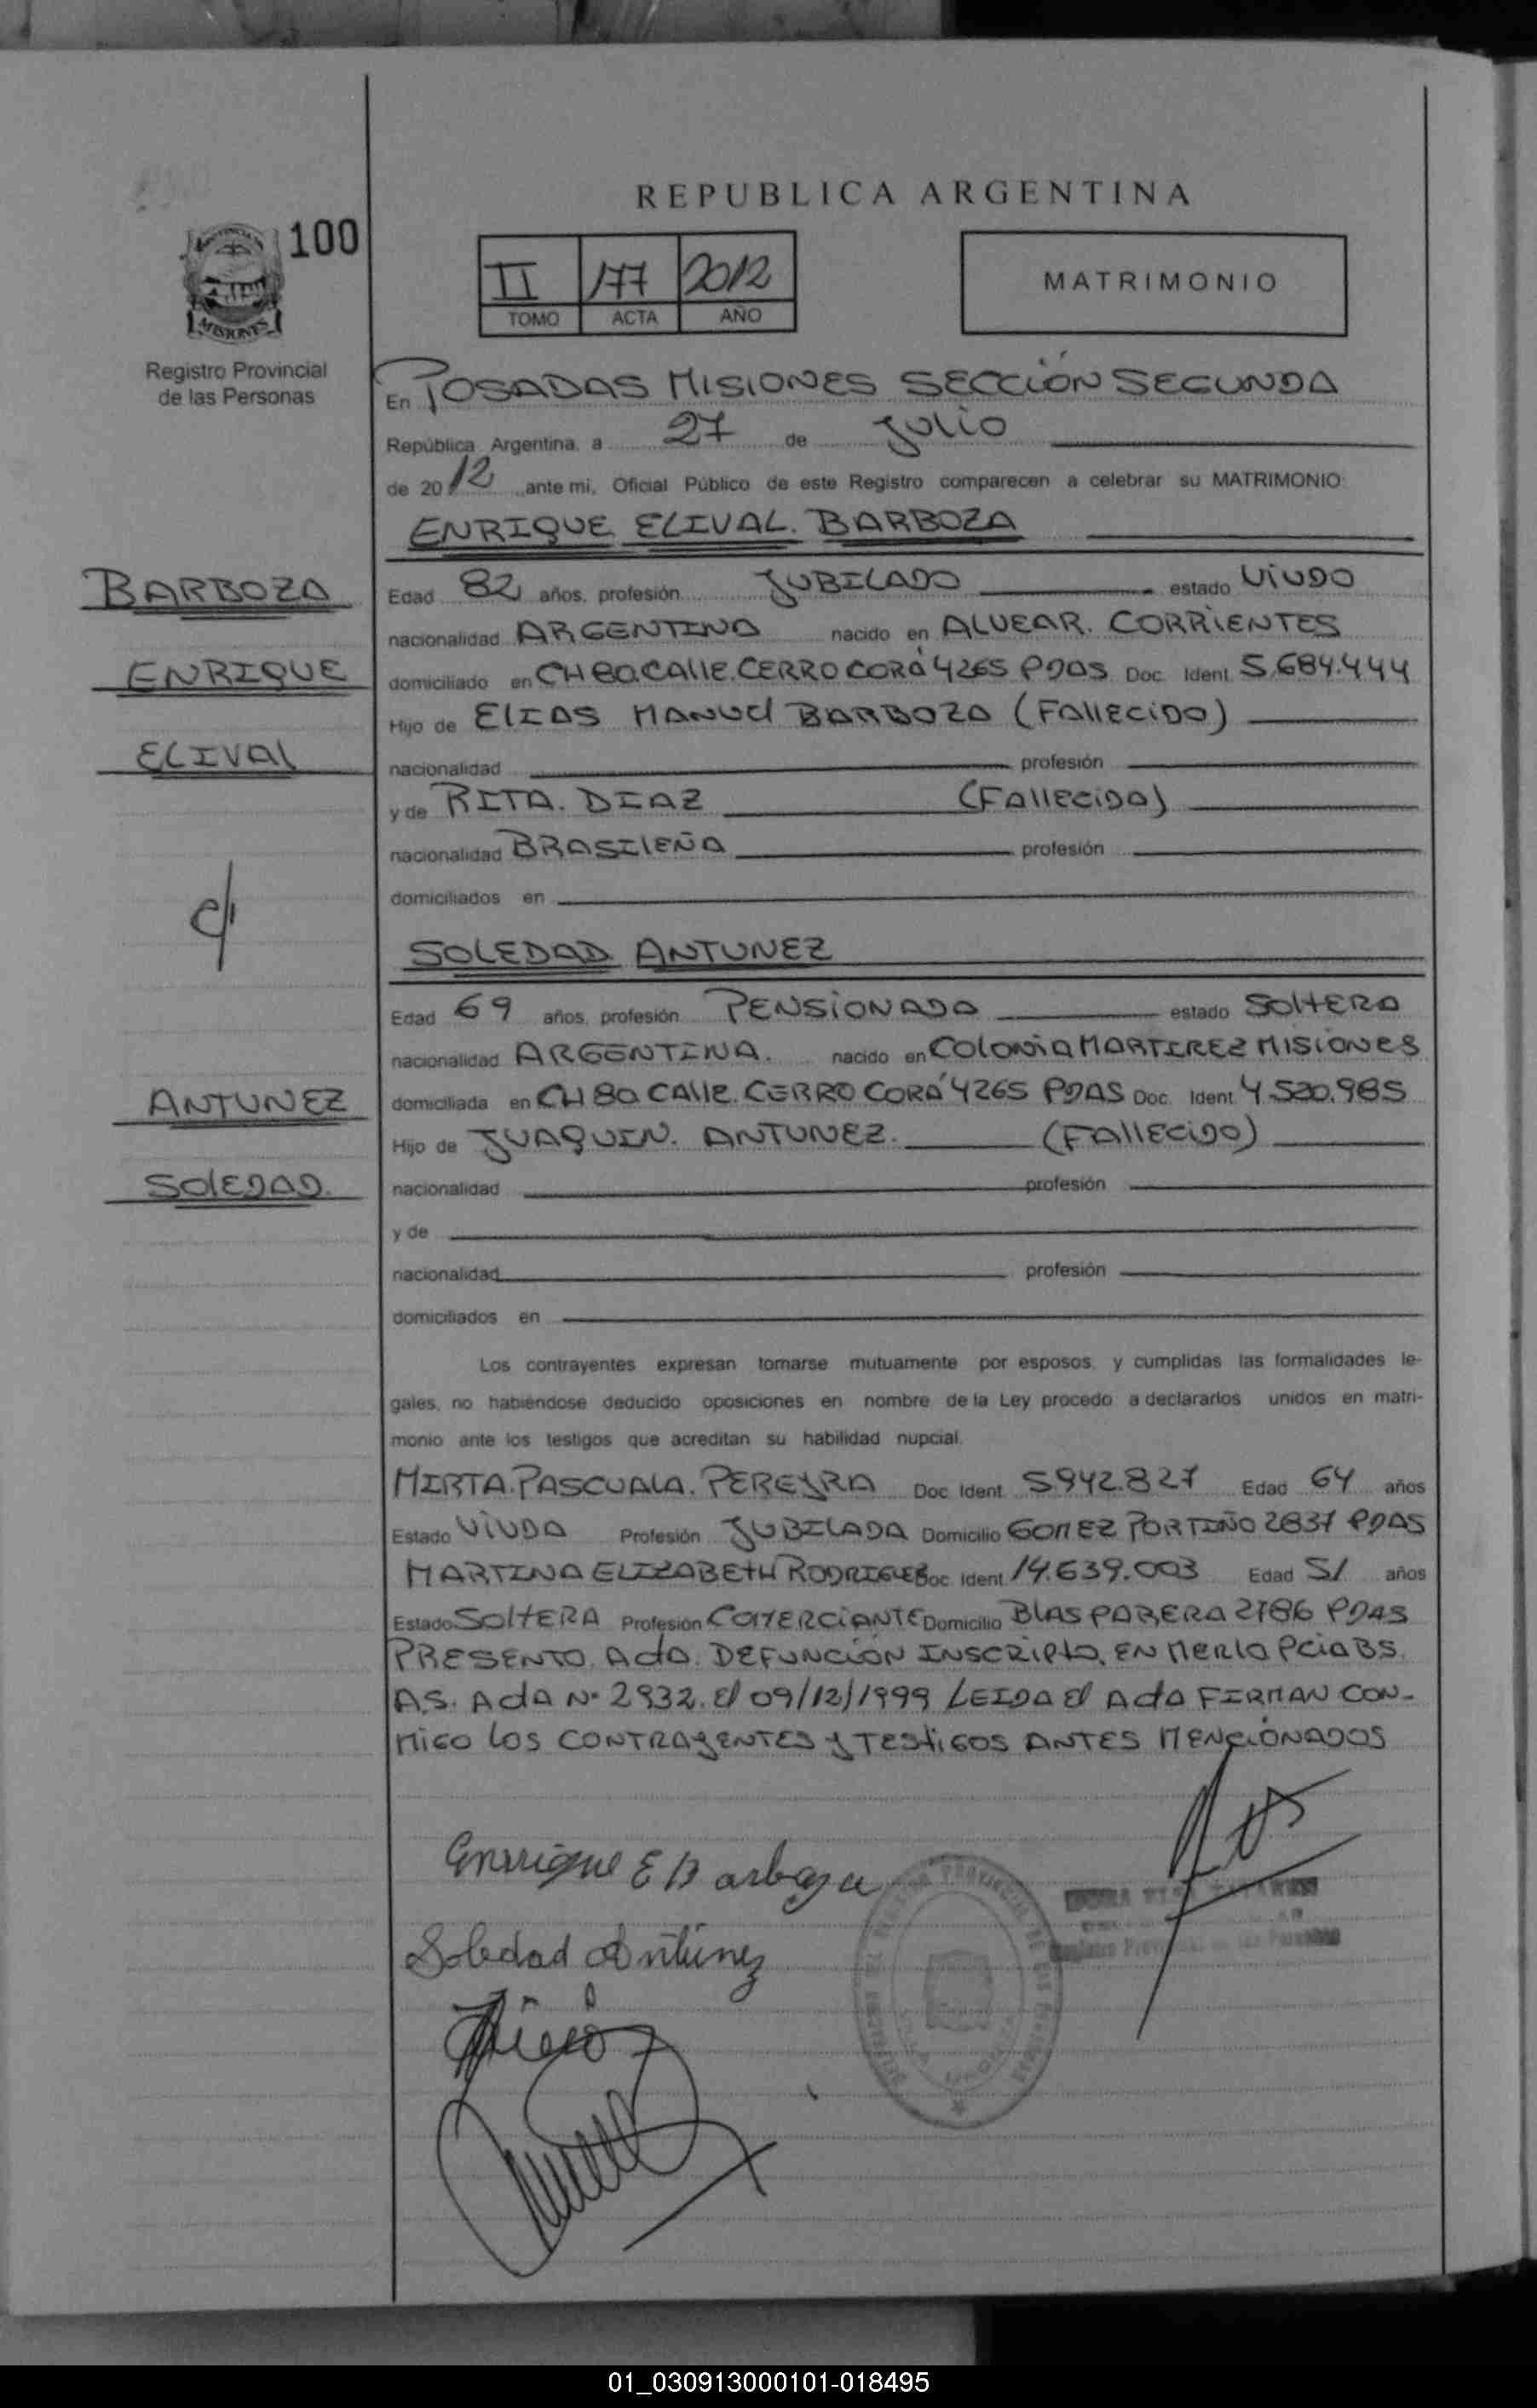 REPUBLICA ARGENTINA
100
II 177 2012
TOMO ACTA AÑO
MATRIMONIO
MISIONES
Registro Provincial
de las Personas
En POSADAS MISIONES SECCIÓN SEGUNDA
República Argentina, a 27 de Julio
de 2012 ante mi, Oficial Público de este Registro comparecen a celebrar su MATRIMONIO:
ENRIQUE ELIVAL. BARBOZA
BARBOZA
Edad 82 años, profesión JUBILADO estado VIUDO
nacionalidad ARGENTINO nacido en ALVEAR. CORRIENTES
ENRIQUE
domiciliado en CH 80. CALLE. CERRO CORÁ 4265 PDAS Doc. Ident. 5.684.444
Hijo de ELIAS MANUEL BARBOZA (FALLECIDO)
ELIVAL
nacionalidad profesión
y de RITA. DIAZ (FALLECIDA)
nacionalidad BRASILEÑA profesión
domiciliados en
c/
SOLEDAD ANTUNEZ
Edad 69 años, profesión PENSIONADA estado SOLTERA
nacionalidad ARGENTINA. nacido en COLONIA MARTIREZ MISIONES
ANTUNEZ
domiciliada en CH 80. CALLE. CERRO CORÁ 4265 PDAS Doc. Ident. 4.520.985
Hijo de JUAQUIN. ANTUNEZ. (FALLECIDO)
SOLEDAD.
nacionalidad profesión
y de
nacionalidad profesión
domiciliados en
Los contrayentes expresan tomarse mutuamente por esposos, y cumplidas las formalidades le-
gales, no habiéndose deducido oposiciones en nombre de la Ley procedo a declararlos unidos en matri-
monio ante los testigos que acreditan su habilidad nupcial.
MIRTA. PASCUALA. PEREYRA Doc. Ident. 5.942.827 Edad 64 años
Estado VIUDA Profesión JUBILADA Domicilio GOMEZ PORTIÑO 2837 PDAS
MARTINA ELIZABETH RODRIGUEZ Doc. Ident. 14.639.003 Edad 51. años
Estado SOLTERA Profesión COMERCIANTE Domicilio BLAS PARERA 2786 PDAS
PRESENTO. ACTA. DEFUNCIÓN INSCRIPTO, EN MERLO PCIA BS.
AS. ACTA Nº 2932. EL 09/12/1999 LEIDA EL ACTA FIRMAN CON-
MIGO LOS CONTRAYENTES Y TESTIGOS ANTES MENCIONADOS
Enrrique E Barboza
Soledad Antúnez
01_030913000101-018495